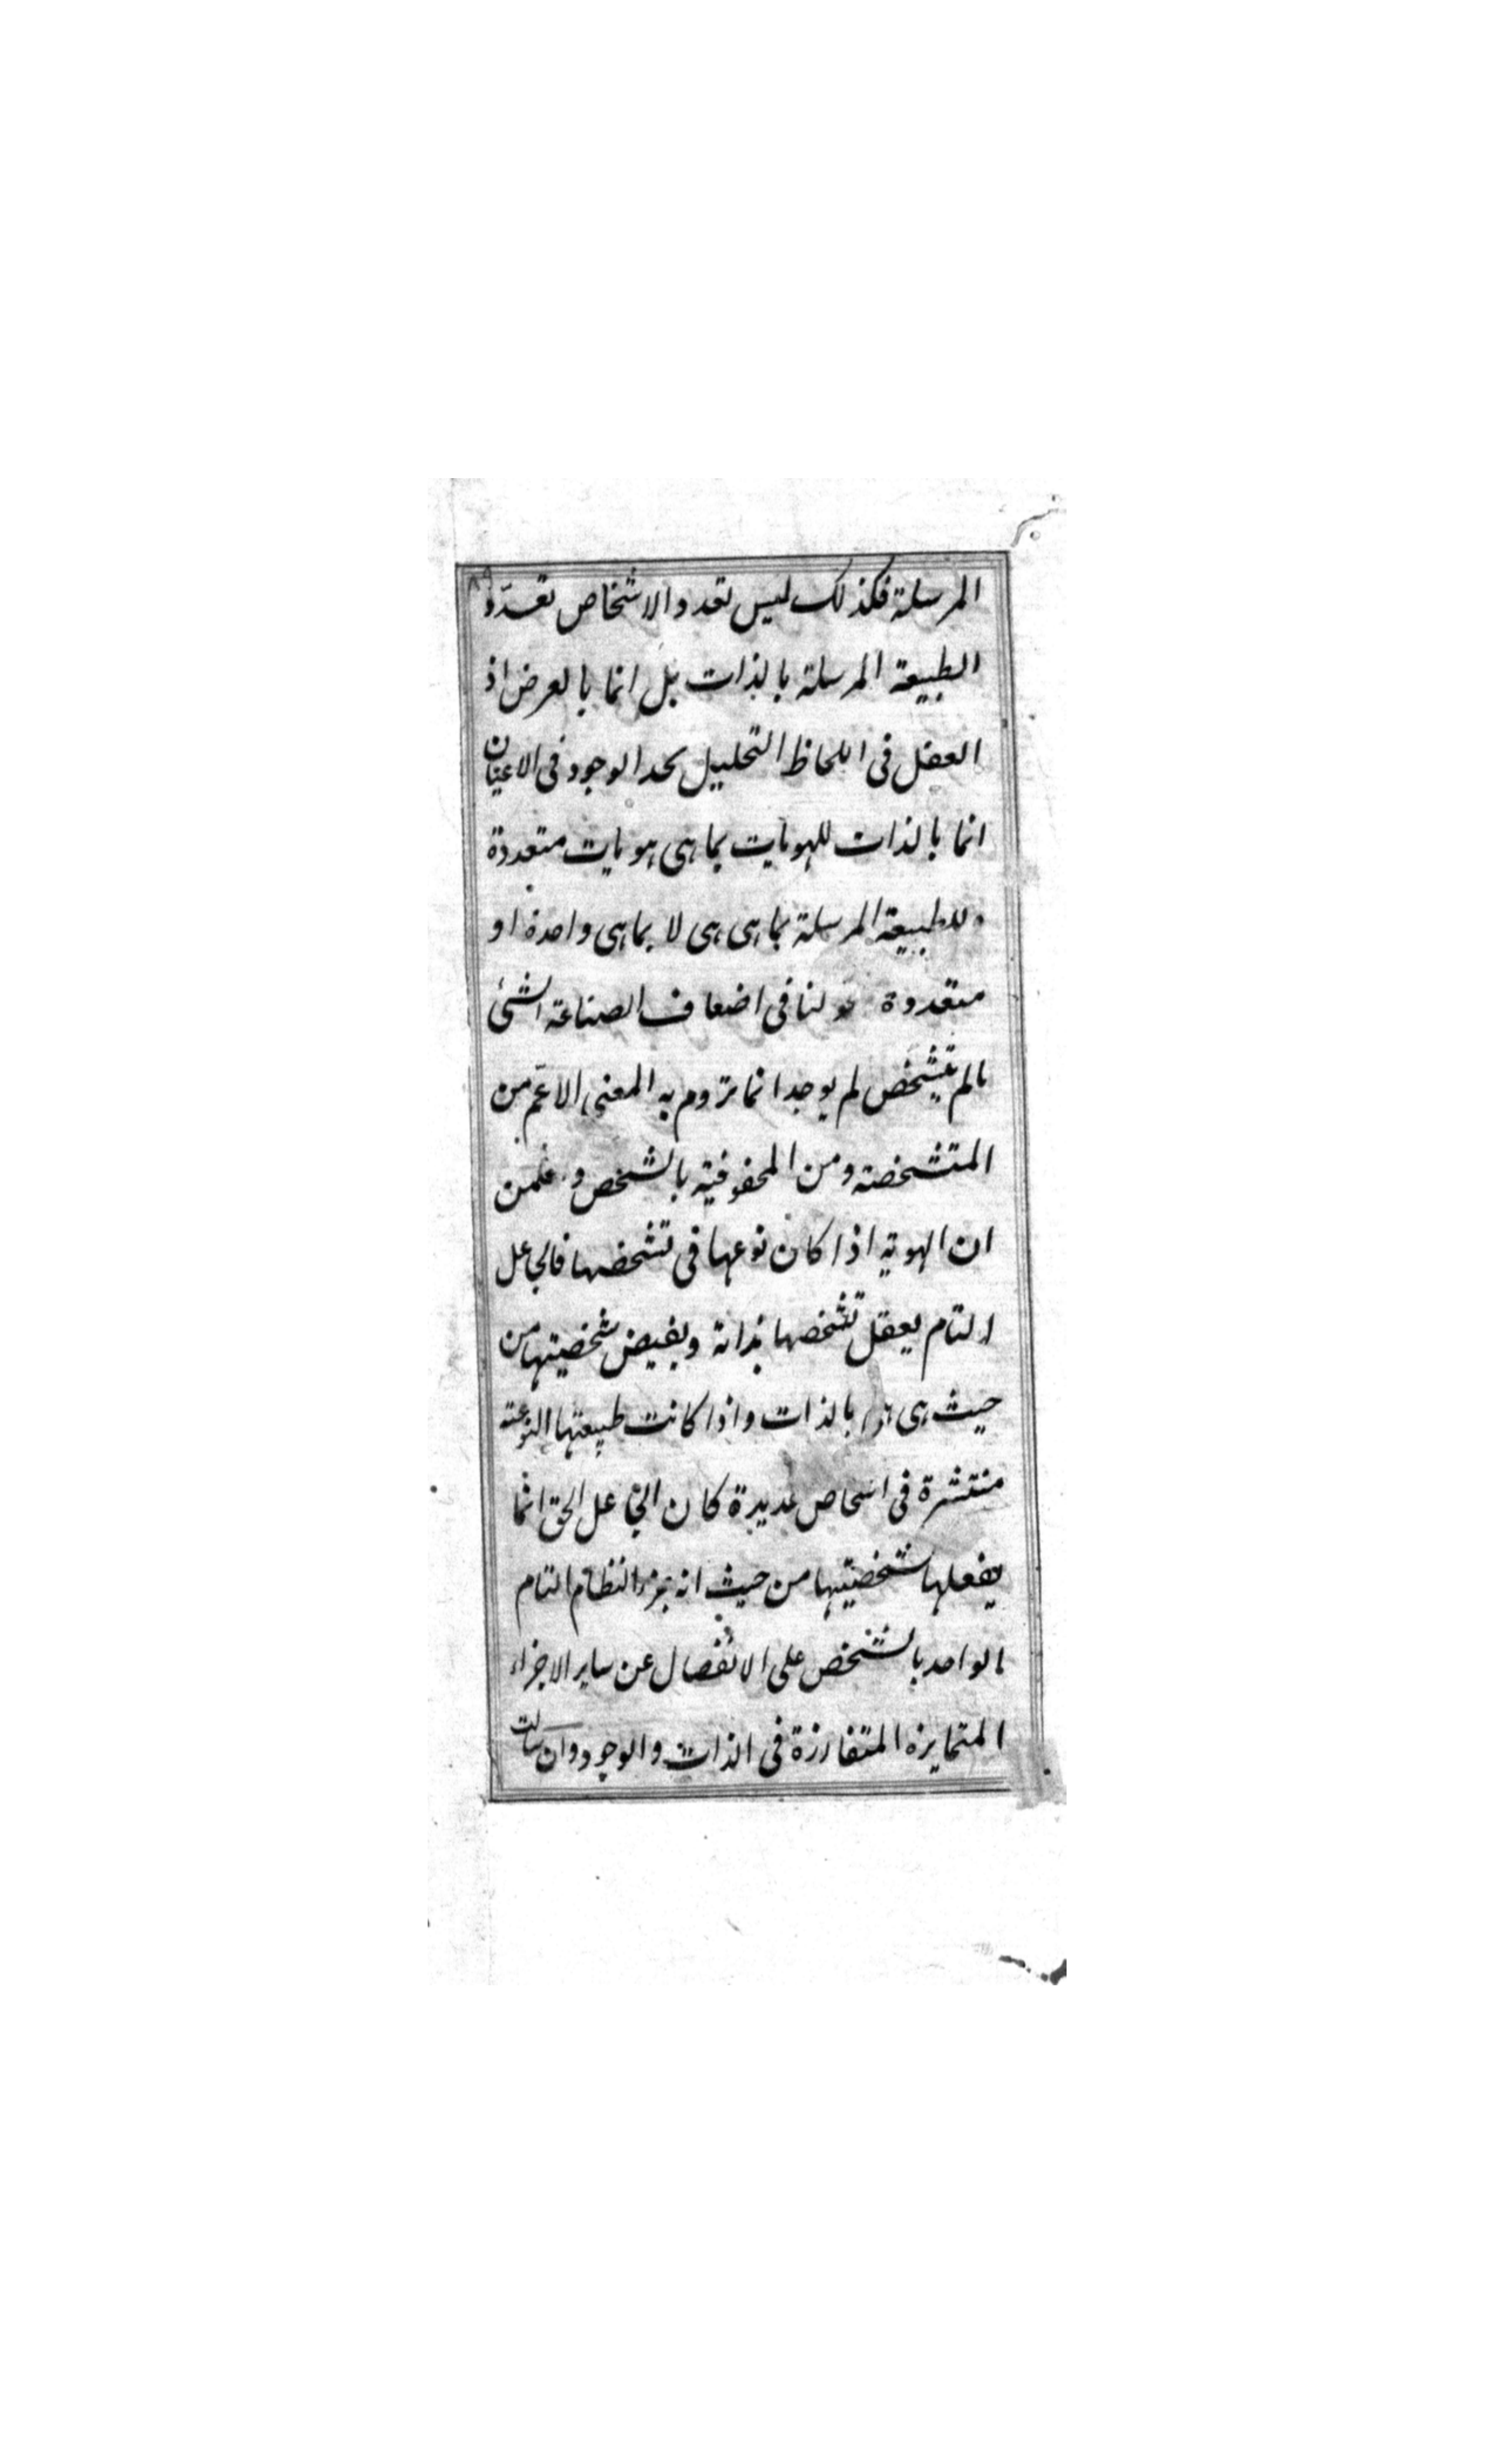 المرسلة فكذلك ليس تعدد الاشخاص تعدّد
الطبيعة المرسلة بالذات بل انما بالعرض اذ
العقل فى اللحاظ التحليل يجد الوجود فى الاعيان
انما بالذات للهويات بما هى هويات متعددة
وللطبيعة المرسلة بما هى هى لا بما هى واحدة او
متعددة قولنا فى اضعاف الصناعة الشئ
مالم يتشخص لم يوجد انما تروم به المعنى الاعم من
المتشخصة ومن المحفوفية بالتشخص و
ان الهوية اذا كان نوعها فى تشخصها فالجاعل
التام يعقل تشخصها بذاته ويفيض شخصيتها من
حيث هى بالذات واذا كانت طبيعتها النوعية
منتشرة فى اشخاص عديدة كان الجاعل الحق انما
يفعلها بشخصيتها من حيث انه جزء النظام التام
الواحد بالشخص على الانفصال عن ساير الاجزاء
المتمايزة المتفارزة فى الذات والوجود وان